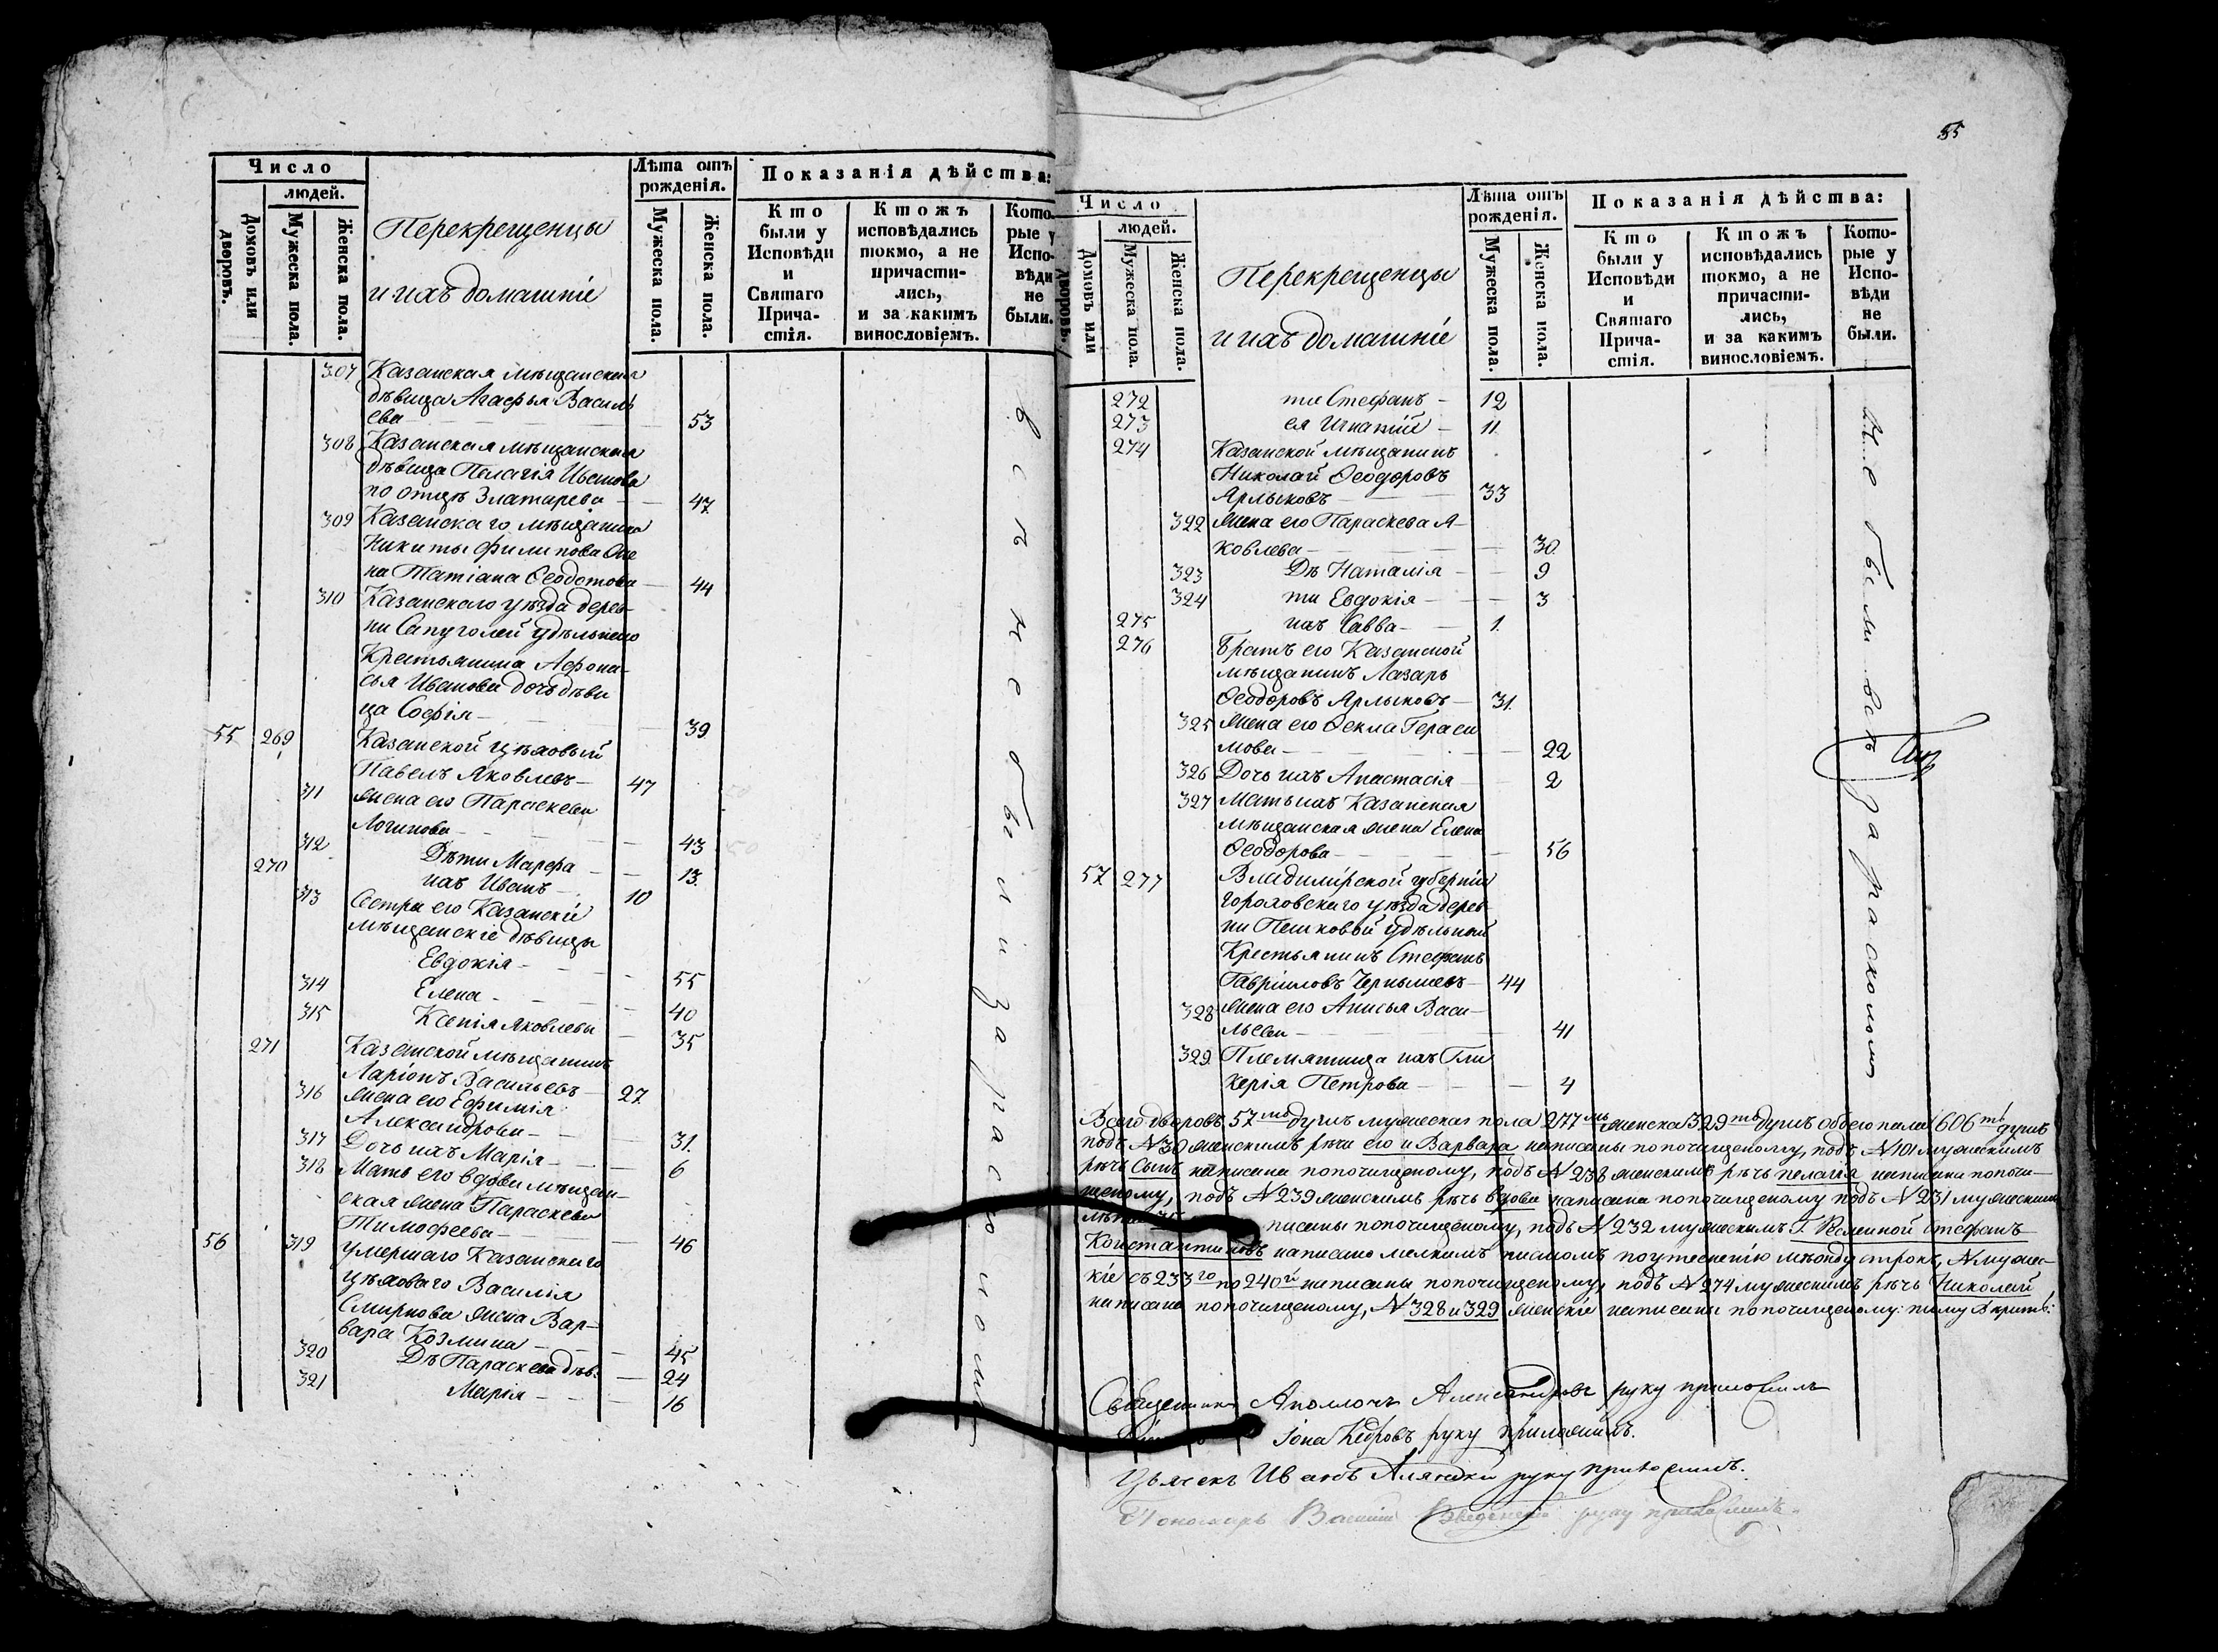 Число
людей.
Домовъ или дворовъ.
Мужеска пола.
Женска пола.
Перекрещенцы
и ихъ домашніе
Лѣта отъ
рожденія.
Мужеска пола.
Женска пола.
Показанія дѣйства:
Кто
были у
Исповѣди
и
Святаго
Прича-
стія.
Ктожъ
исповѣдались
токмо, а не
причасти-
лись,
и за какимъ
винословіемъ.
Кото-
рые у
Испо-
вѣди
не
были.
307 Казанская мѣщанская
дѣвица Агафья Василь
ева 53
308 Казанская мѣщанская
дѣвица Пелагія Иванова
по отцѣ Златарева 47
309 Казанскаго мѣщанина
Никиты Филипова же
на Татіана Ѳеодотова 44
310 Казанскаго уѣзда дерев-
ни Сапуголей удѣльнаго
Крестьянина Афона-
сья Иванова дочь дѣви
ца Софія 39
55 269 Казанской цѣховый
Павелъ Яковлевъ 47
311 жена его Параскева
Логинова 43
312 Дѣти Марфа 13
270 ихъ Иванъ 10
313 Сестры его Казанскіе
мѣщанскіе дѣвицы
Евдокія 55
314 Елена 40
315 Ксенія Яковлевы 35
271 Казанской мѣщанинъ
Ларіонъ Васильевъ 27
316 жена его Ефимія
Александрова 31
317 Дочь ихъ Марія 6
318 Мать его вдова мѣщан-
ская жена Параскева
Тимофеева 46
56 319 умершаго Казанскаго
цѣховаго Василія
Смирнова жена Вар-
вара Козмина 45
320 Дѣ Параскева дѣв. 24
321 Марія 16
всѣ не были за раско
55
Число
людей.
Домовъ или дворовъ.
Мужеска пола.
Женска пола.
Перекрещенцы
и ихъ домашніе
Лѣта отъ
рожденія.
Мужеска пола.
Женска пола.
Показанія дѣйства:
Кто
были у
Исповѣди
и
Святаго
Прича-
стія.
Ктожъ
исповѣдались
токмо, а не
причасти-
лись,
и за какимъ
винословіемъ.
Кото-
рые у
Испо-
вѣди
не
были.
272 ти Стефанъ 12
273 ея Игнатій 11
274 Казанской мѣщанинъ
Николай Ѳеодоровъ
Ярлыковъ 33
322 жена его Параскева Я-
ковлева 30
323 Дѣ Наталія 9
324 ти Евдокія 3
275 ихъ Савва 1
276 Братъ его Казанской
мѣщанинъ Лазарь
Ѳеодоровъ Ярлыковъ 31
325 жена его Ѳекла Гераси
мова 22
326 Дочь ихъ Анастасія 2
327 Мать ихъ Казанская
мѣщанская жена Елена
Ѳеодорова 56
57 277 Владимірской губерніи
Гороховскаго уѣзда дерев-
ни Пешковой удѣльной
Крестьянинъ Стефанъ
Гавріиловъ Чернышевъ 44
328 жена его Анисья Васи-
льева 41
329 Племянница ихъ Гли
керія Петрова 4
не были всѣ за расколомъ
Всего дворовъ 57мь душъ мужеска пола 277мь женска 329ть душъ обоего пола 606ть душъ
подъ № 30 женскимъ рѣчи его и Варвара написаны по почищеному, подъ № 101 мужескимъ
рѣчь сынъ написана по почищеному, подъ № 238 женскимъ рѣчь пелагія написана по почи-
щеному, подъ № 239 женскимъ рѣчь вдова написана по почищеному подъ № 231 мужескимъ
писаны по почищеному, подъ № 232 мужескимъ Стефанъ
Константиновъ написано мелкимъ письмомъ по утесненію между строкъ, № мужес-
кіе съ 233го по 240й написаны по почищеному, подъ № 274 мужескимъ рѣчь Николай
написана по почищеному, № 328 и 329 женскіе написаны по почищеному:
Священникъ Аполлонъ Александровъ руку приложилъ
Іона Кедровъ руку приложилъ.
Дьячекъ Иванъ руку приложилъ.
Пономарь Василій Введенскій руку приложилъ.